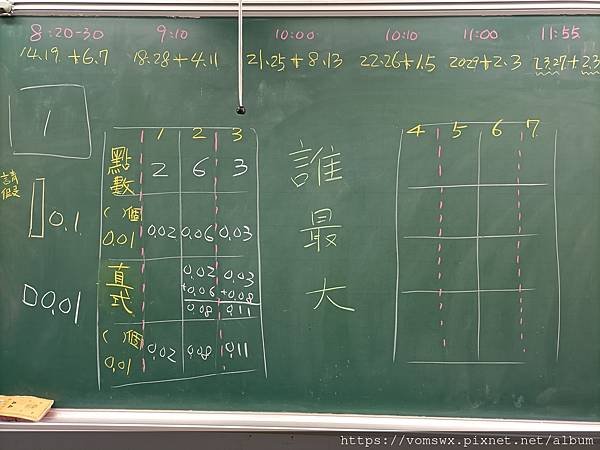 8:20-30 9:10 10:00 10:10 11:00 11:55
14.19.+6.7 18.28+4.11 21.25+8.13 22.26+1.5 2029+2.3 23.27+2.3
1
請假
0.1
0.01
1 2 3
點數 2 6 3
( )個 0.01 0.02 0.06 0.03
直式 0.02 0.03
+0.06 +0.08
0.08 0.11
( )個 0.01 0.02 0.08 0.11
誰
最
大
4 5 6 7
https://vomswx.pixnet.net/album